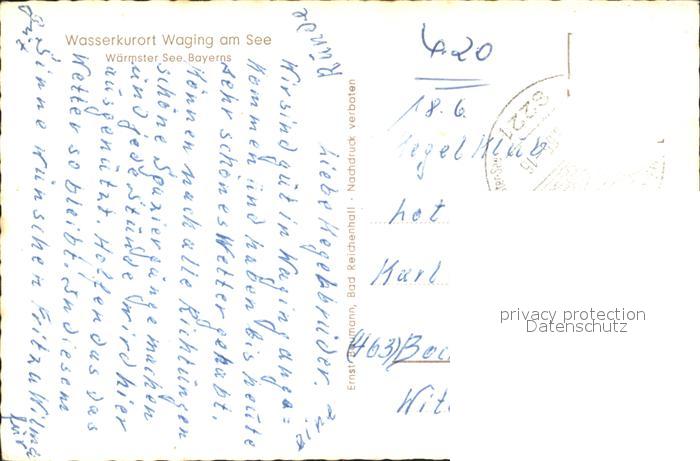 Wasserkurort Waging am See
Wärmster See Bayerns
Liebe Kegelbrüder.
Wir sind gut in Waging ange=
kommen und haben bis heute
sehr schönes Wetter gehabt.
Können nach alle Richtungen
schöne Spaziergänge machen
und jede Stunde wird hier
ausgenützt. Hoffen das das
Wetter so bleibt. In diesem
Sinne wünschen Fritz u Wilma
Gut
Ernst Baumann, Bad Reichenhall - Nachdruck verboten
420
18.6.
Kegel Klub
Lot
Karl
(463) Boc
Wit
8221
privacy protection
Datenschutz